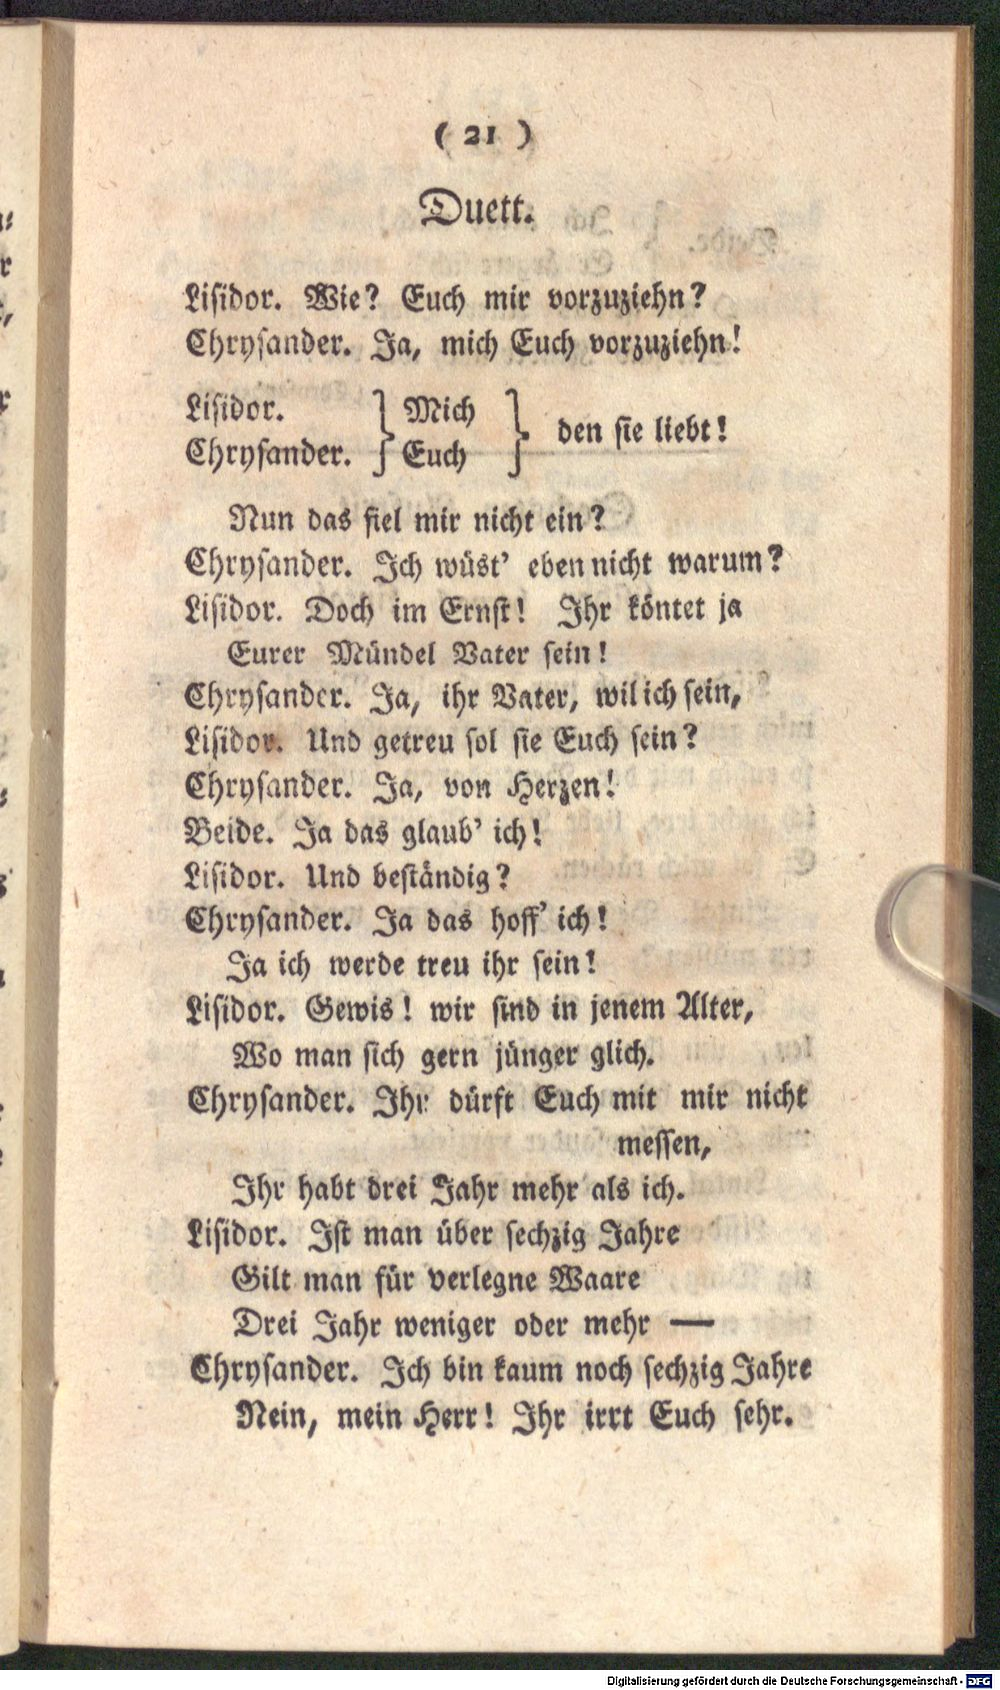 ( 21 )
Duett.
Lisidor. Wie? Euch mir vorzuziehn?
Chrysander. Ja, mich Euch vorzuziehn!
Lisidor. } Mich }
Chrysander. } Euch } den sie liebt!
Nun das fiel mir nicht ein?
Chrysander. Ich wüst' eben nicht warum?
Lisidor. Doch im Ernst! Ihr köntet ja
Eurer Mündel Vater sein!
Chrysander. Ja, ihr Vater, wil ich sein,
Lisidor. Und getreu sol sie Euch sein?
Chrysander. Ja, von Herzen!
Beide. Ja das glaub' ich!
Lisidor. Und beständig?
Chrysander. Ja das hoff' ich!
Ja ich werde treu ihr sein!
Lisidor. Gewis! wir sind in jenem Alter,
Wo man sich gern jünger glich.
Chrysander. Ihr dürft Euch mit mir nicht
messen,
Ihr habt drei Jahr mehr als ich.
Lisidor. Ist man über sechzig Jahre
Gilt man für verlegne Waare
Drei Jahr weniger oder mehr —
Chrysander. Ich bin kaum noch sechzig Jahre
Nein, mein Herr! Ihr irrt Euch sehr.
Digitalisierung gefördert durch die Deutsche Forschungsgemeinschaft - DFG